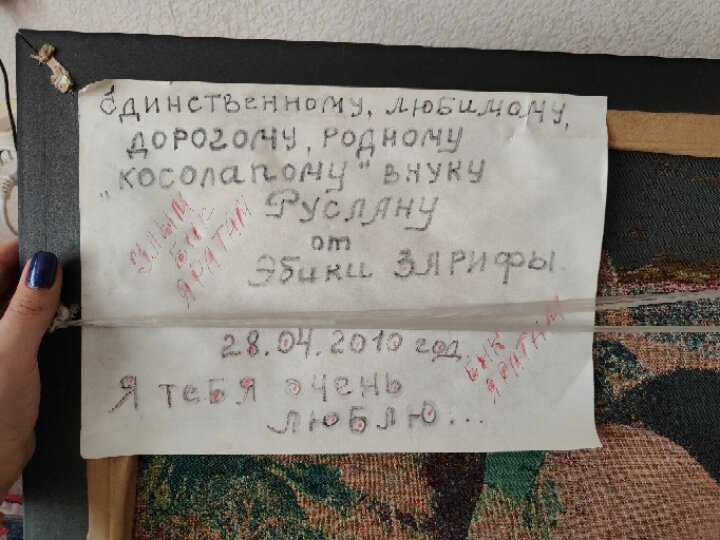 Единственному, любимому,
дорогому, родному
"косолапому" внуку
Руслану
от
Эбики Зарифы
28.04.2010 год
Я тебя очень
люблю...
Улым
бик
яратам
бик
яратам